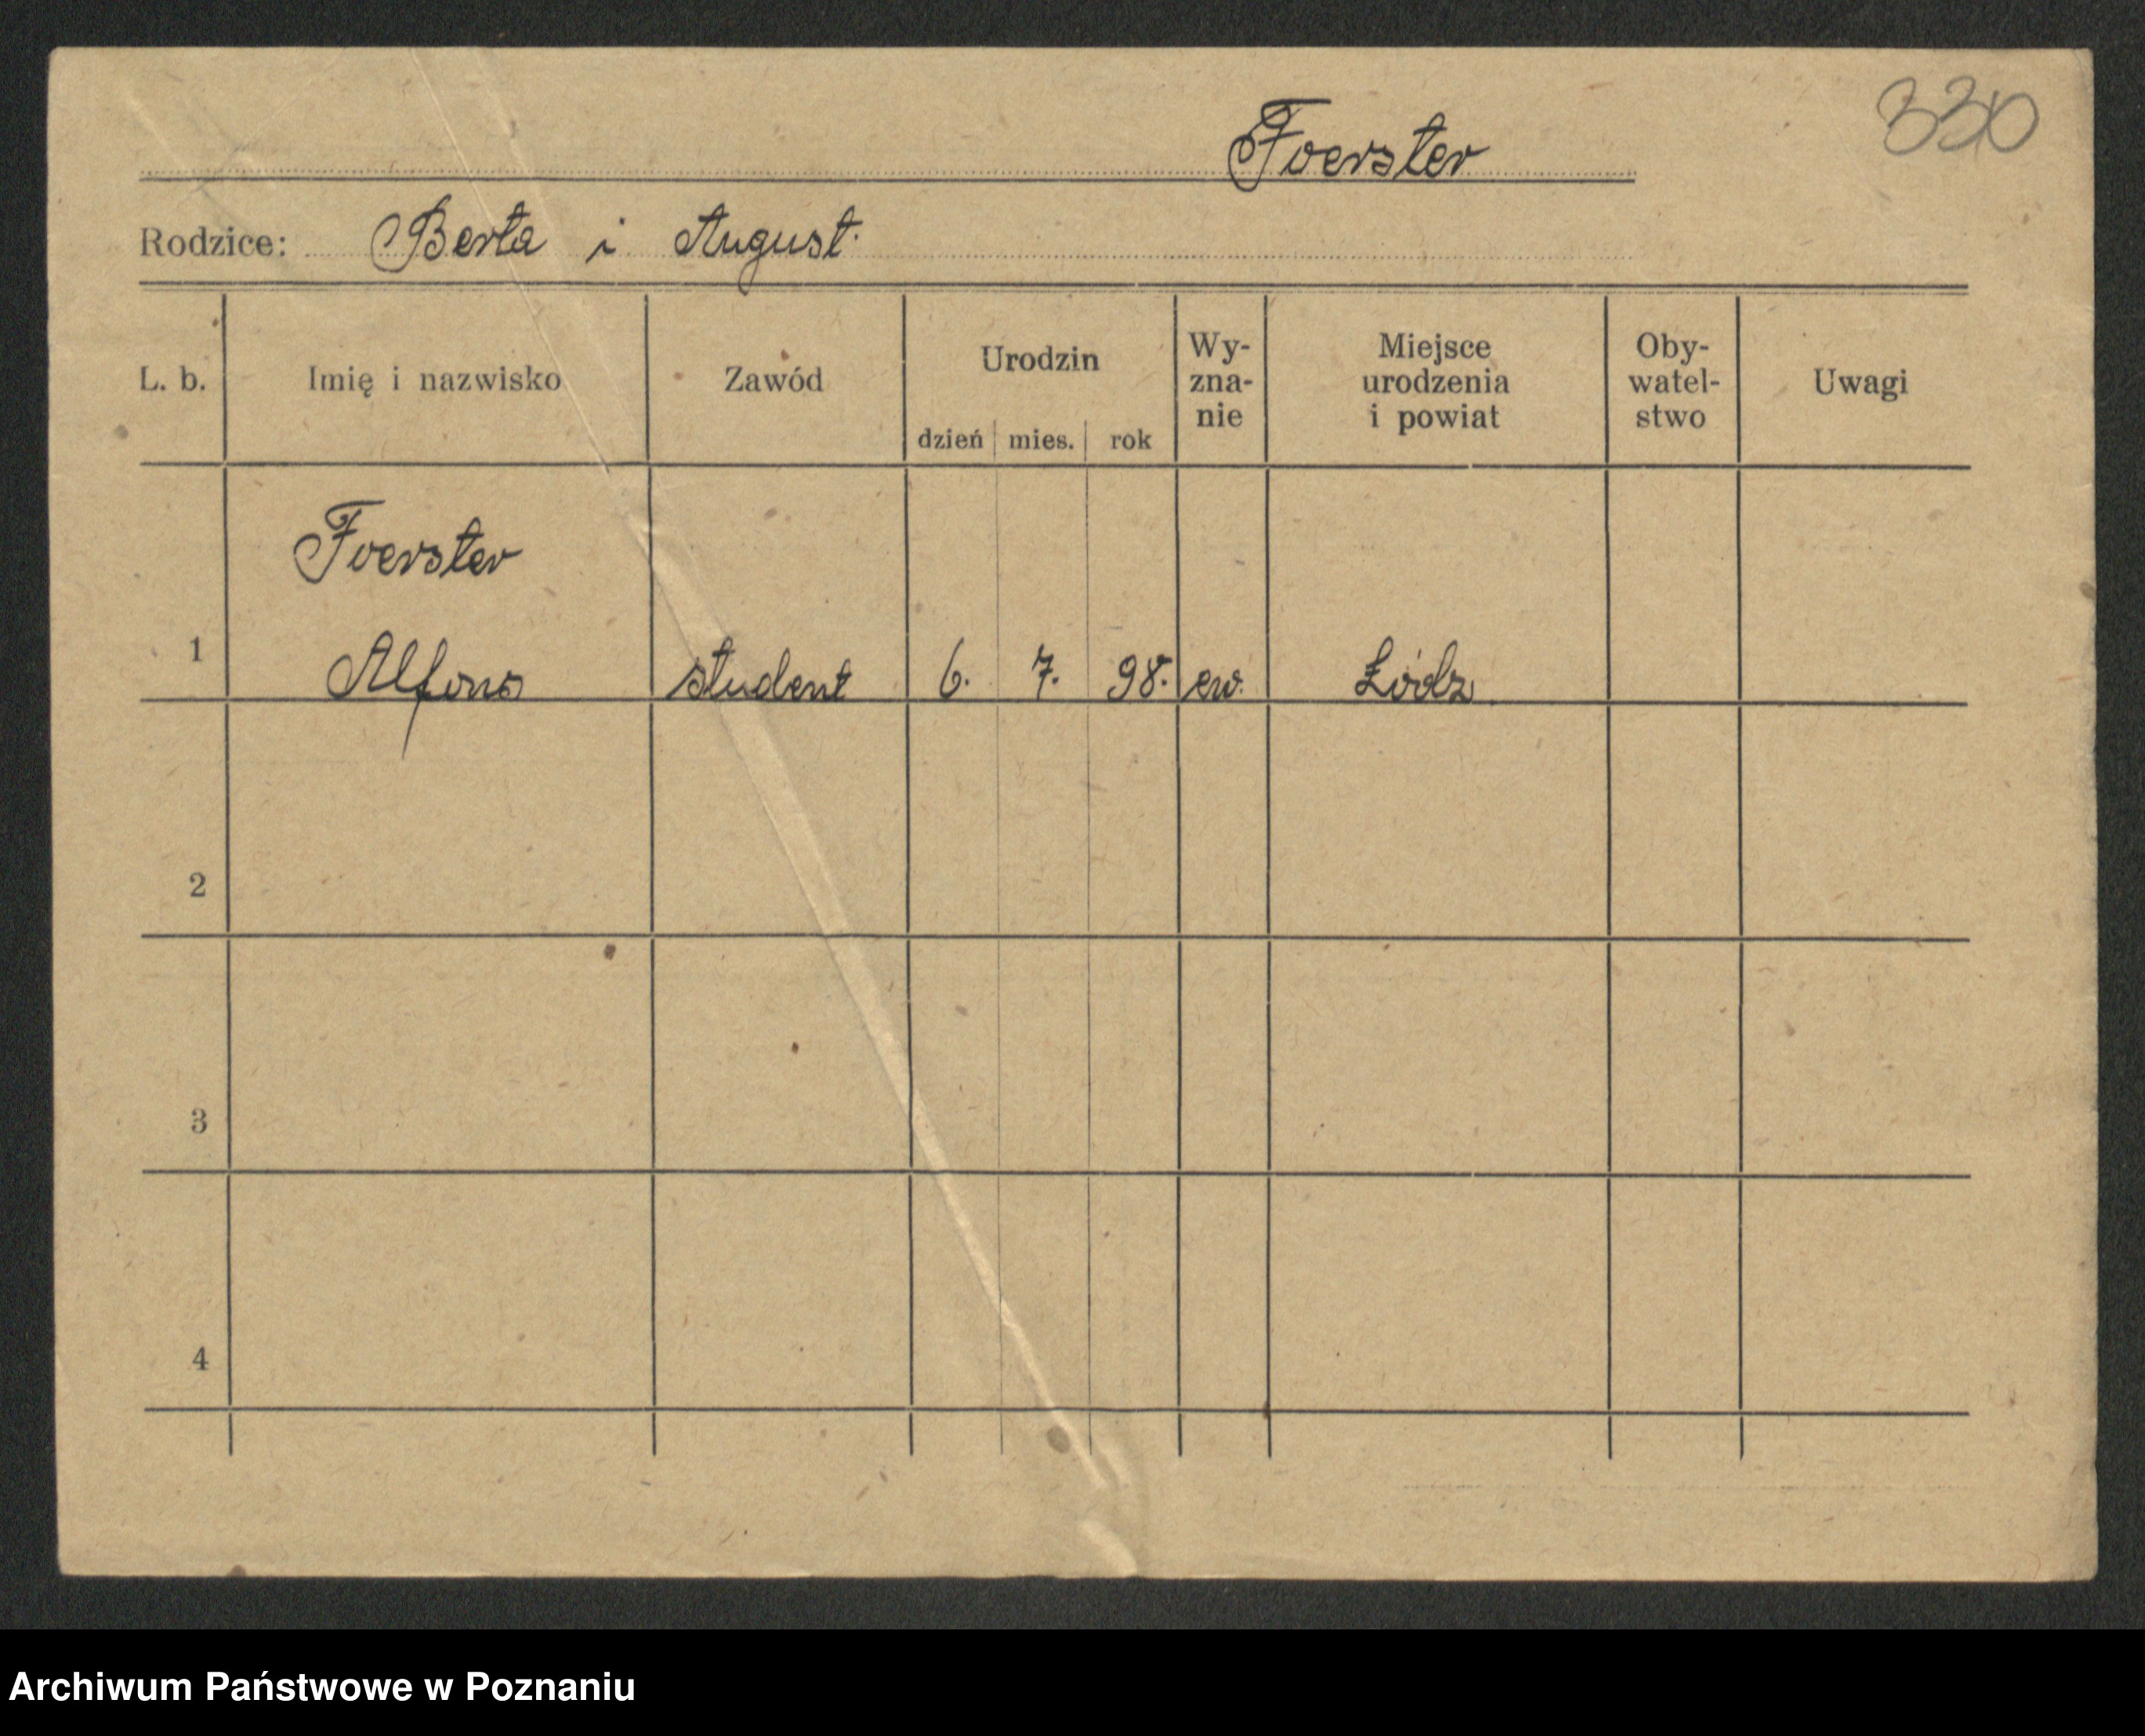 330
Foerster
Rodzice: Berta i August
L. b.
Imię i nazwisko
Zawód
Urodzin
dzień mies. rok
Wy-
zna-
nie
Miejsce
urodzenia
i powiat
Oby-
watel-
stwo
Uwagi
Foerster
1 Alfons student 6. 7. 98. ew. Łódz
2
3
4
Archiwum Państwowe w Poznaniu